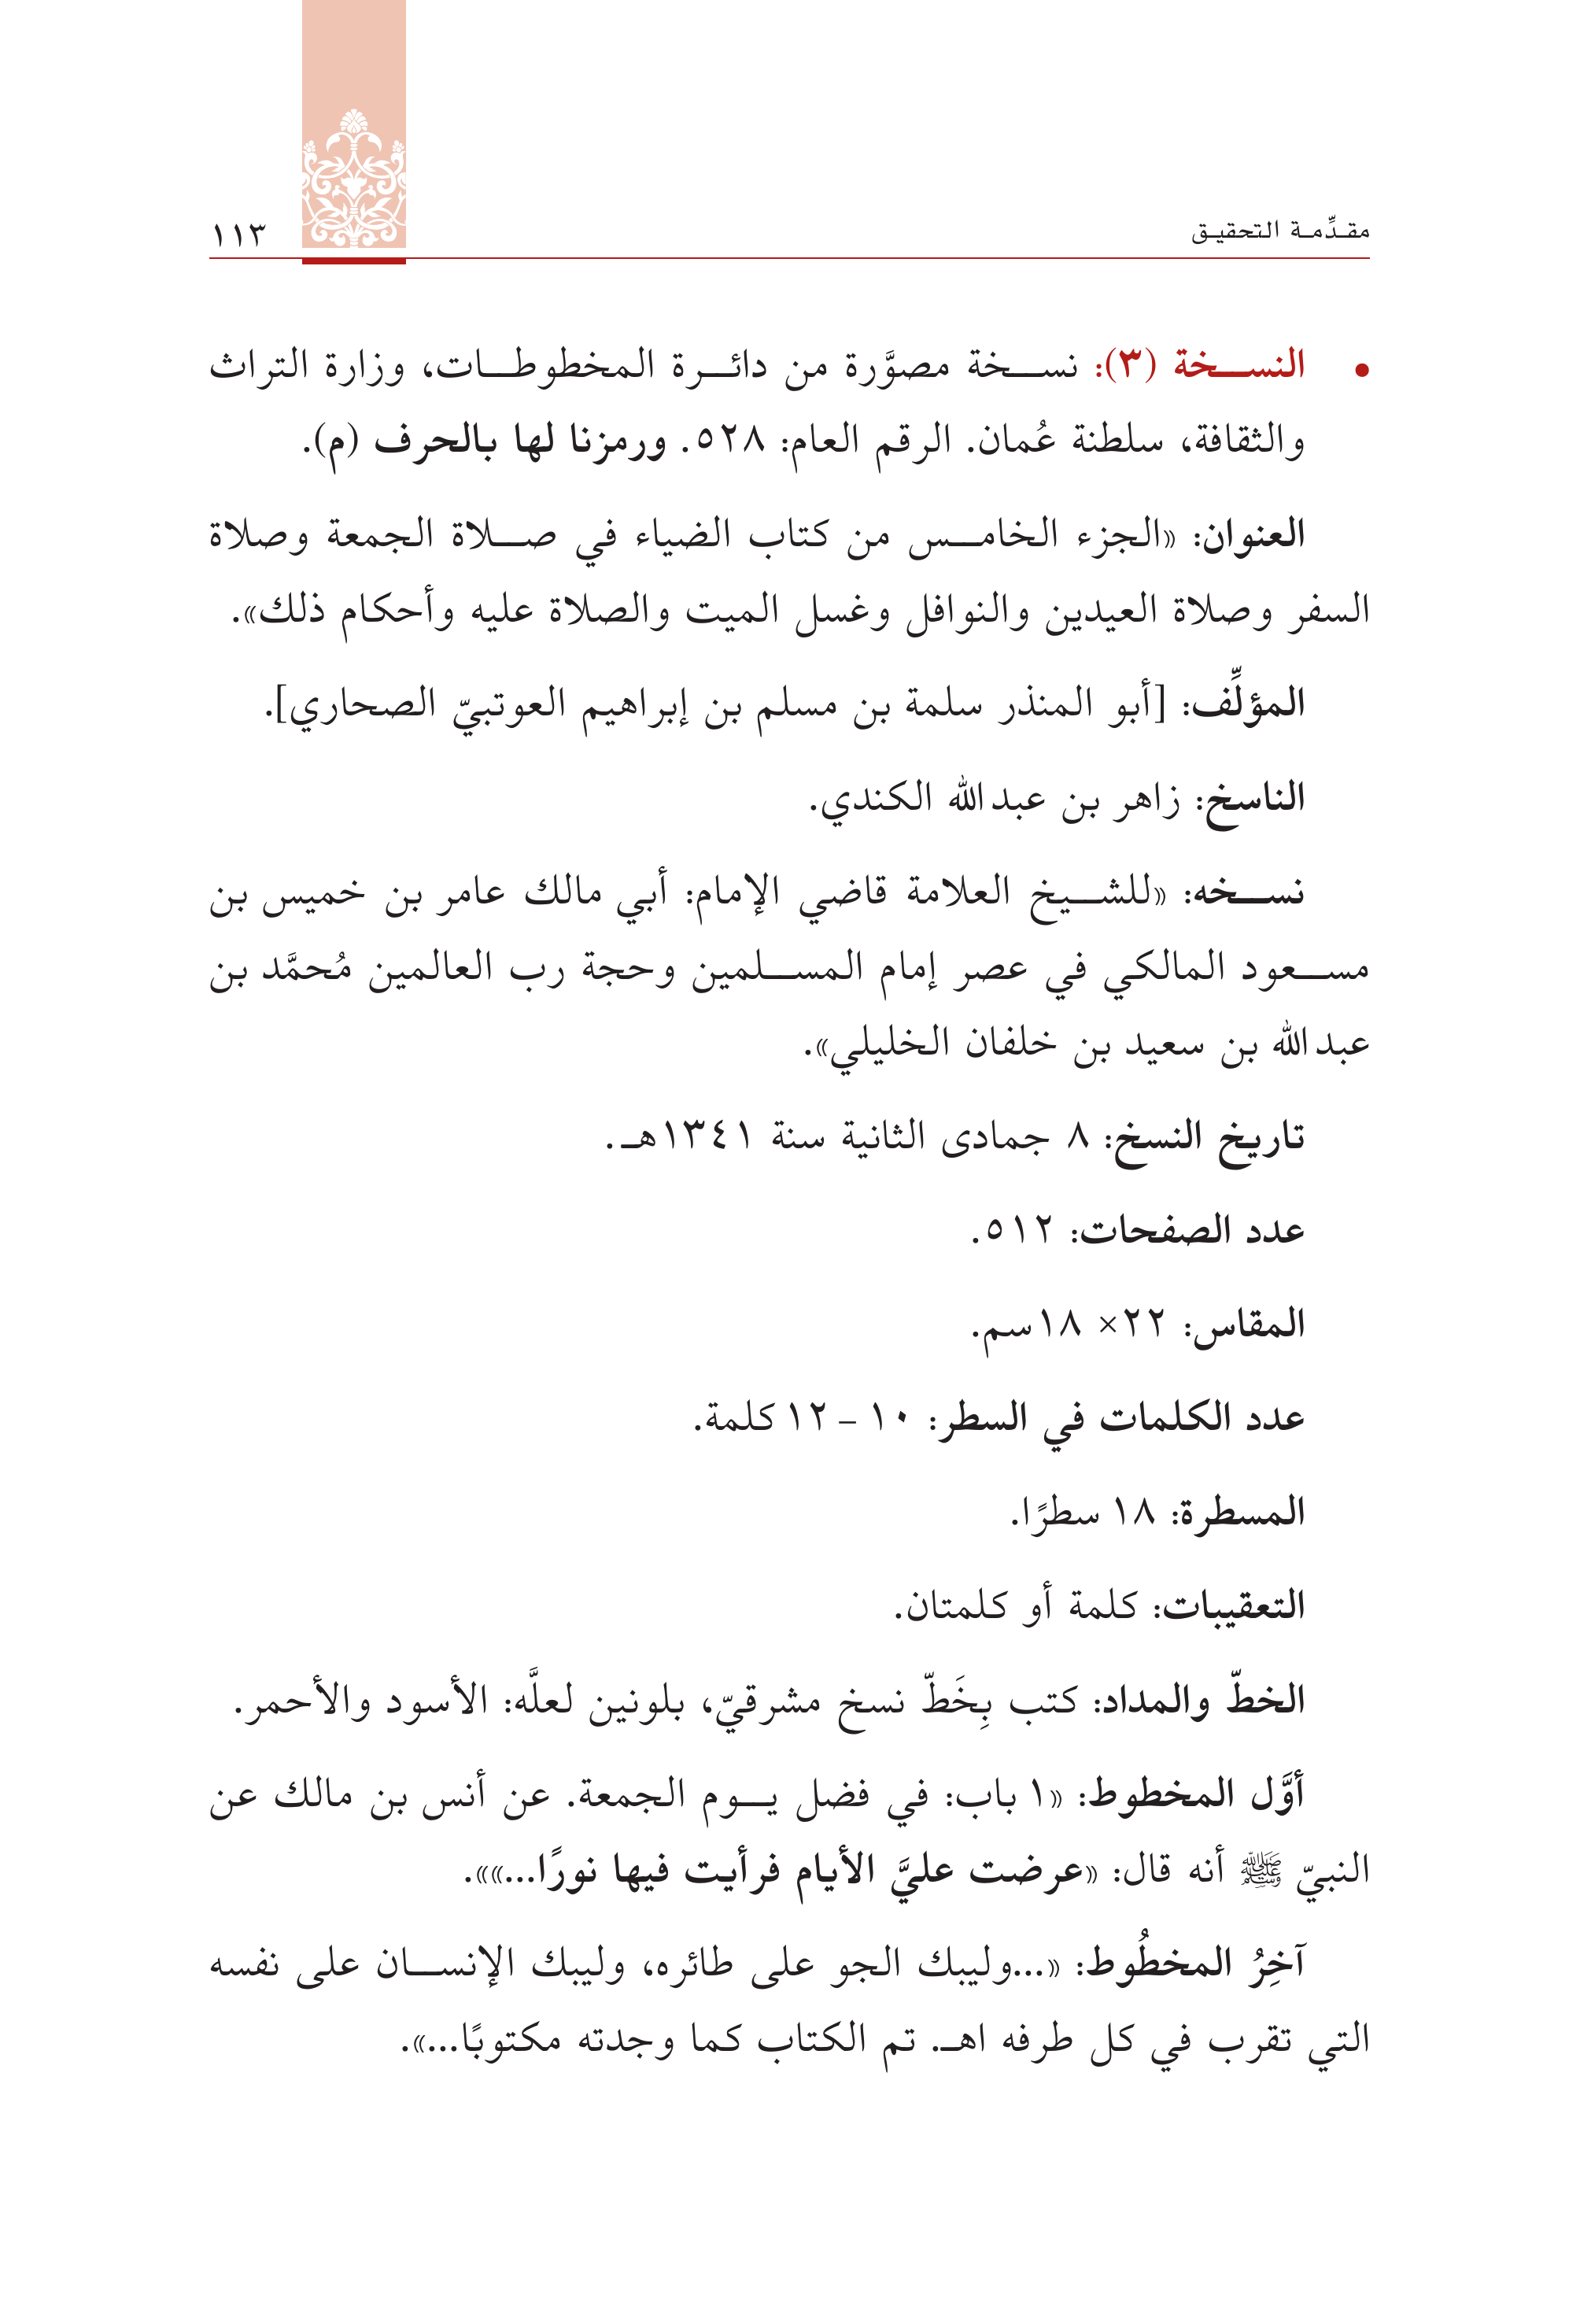 مقدِّمة التحقيق
١١٣
• النسخة (٣): نسخة مصوَّرة من دائرة المخطوطات، وزارة التراث
والثقافة، سلطنة عُمان. الرقم العام: ٥٢٨. ورمزنا لها بالحرف (م).
العنوان: «الجزء الخامس من كتاب الضياء في صلاة الجمعة وصلاة
السفر وصلاة العيدين والنوافل وغسل الميت والصلاة عليه وأحكام ذلك».
المؤلِّف: [أبو المنذر سلمة بن مسلم بن إبراهيم العوتبيّ الصحاري].
الناسخ: زاهر بن عبدالله الكندي.
نسخه: «للشيخ العلامة قاضي الإمام: أبي مالك عامر بن خميس بن
مسعود المالكي في عصر إمام المسلمين وحجة رب العالمين مُحمَّد بن
عبدالله بن سعيد بن خلفان الخليلي».
تاريخ النسخ: ٨ جمادى الثانية سنة ١٣٤١هـ.
عدد الصفحات: ٥١٢.
المقاس: ٢٢× ١٨سم.
عدد الكلمات في السطر: ١٠ – ١٢ كلمة.
المسطرة: ١٨ سطرًا.
التعقيبات: كلمة أو كلمتان.
الخطّ والمداد: كتب بِخَطّ نسخ مشرقيّ، بلونين لعلَّه: الأسود والأحمر.
أوَّل المخطوط: «١ باب: في فضل يوم الجمعة. عن أنس بن مالك عن
النبيّ ﷺ أنه قال: «عرضت عليَّ الأيام فرأيت فيها نورًا...»».
آخِرُ المخطُوط: «...وليبك الجو على طائره، وليبك الإنسان على نفسه
التي تقرب في كل طرفه اهـ. تم الكتاب كما وجدته مكتوبًا...».